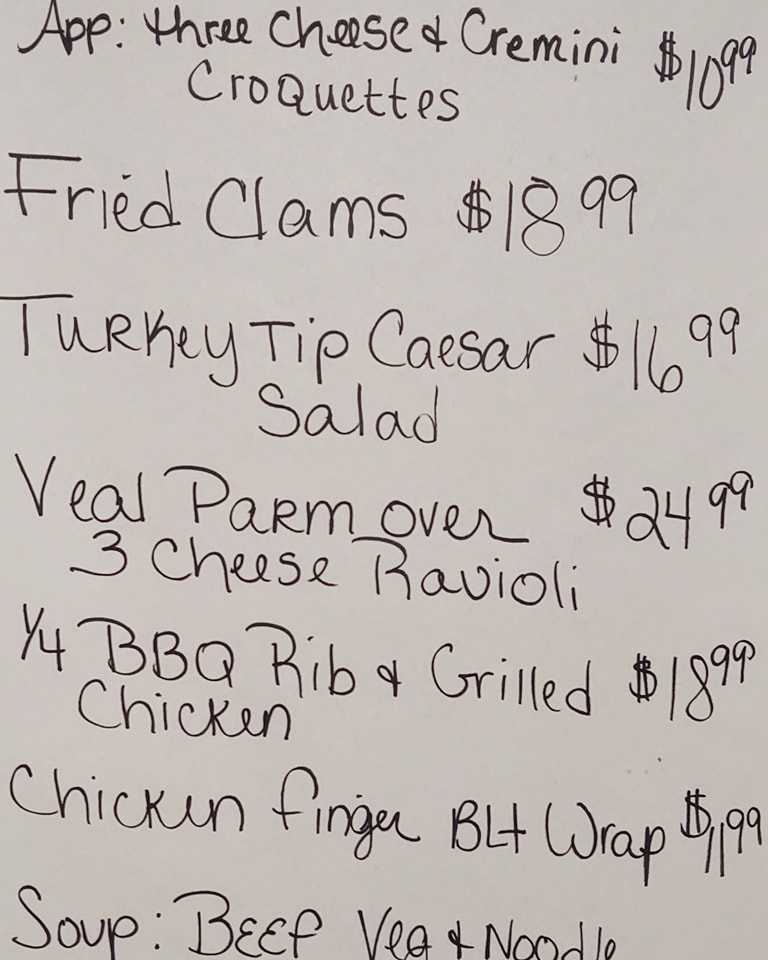 App: three Cheese & Cremini $10.99
Croquettes
Fried Clams $18.99
Turkey Tip Caesar $16.99
Salad
Veal Parm over $24.99
3 Cheese Ravioli
1/4 BBQ Rib & Grilled $18.99
Chicken
Chicken finger BLT Wrap $11.99
Soup: Beef Veg & Noodle